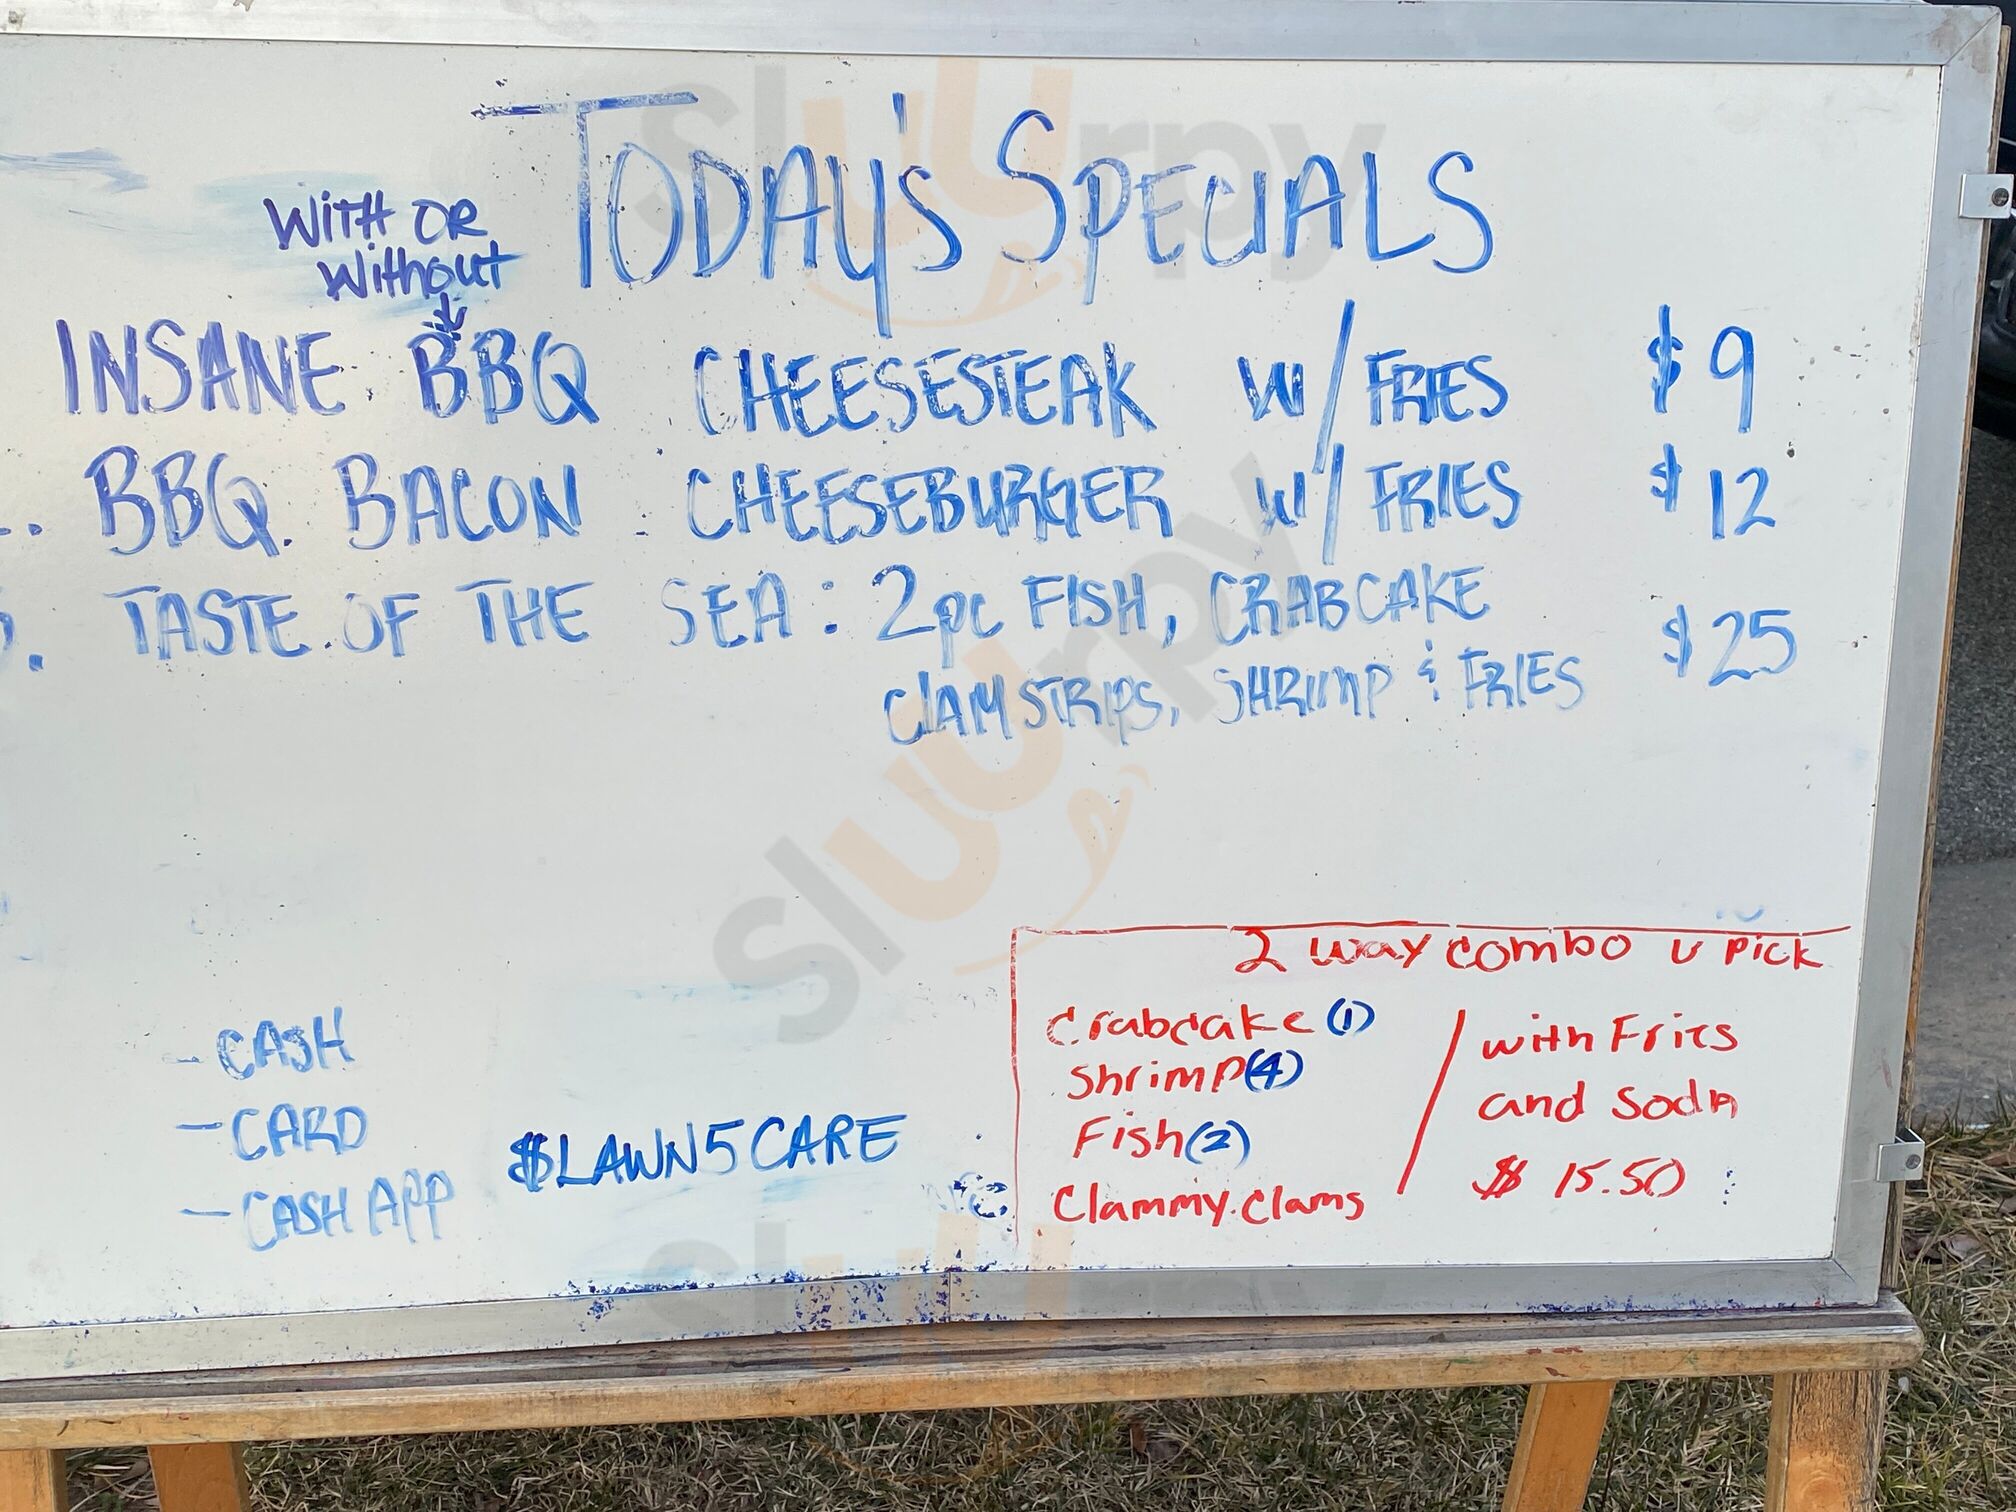 TODAY'S SPECIALS
WITH OR
Without
INSANE BBQ CHEESESTEAK W/ FRIES $9
.. BBQ BACON CHEESEBURGER W/ FRIES $12
. TASTE OF THE SEA: 2pc FISH, CRABCAKE
CLAM STRIPS, SHRIMP & FRIES $25
2 way combo u pick
Crabcake (1)
Shrimp (4)
Fish (2)
Clammy.clams
with Fries
and Soda
$ 15.50
- CASH
- CARD
- CASH APP
$LAWN5CARE
sluurpy
sluurpy
sluurpy